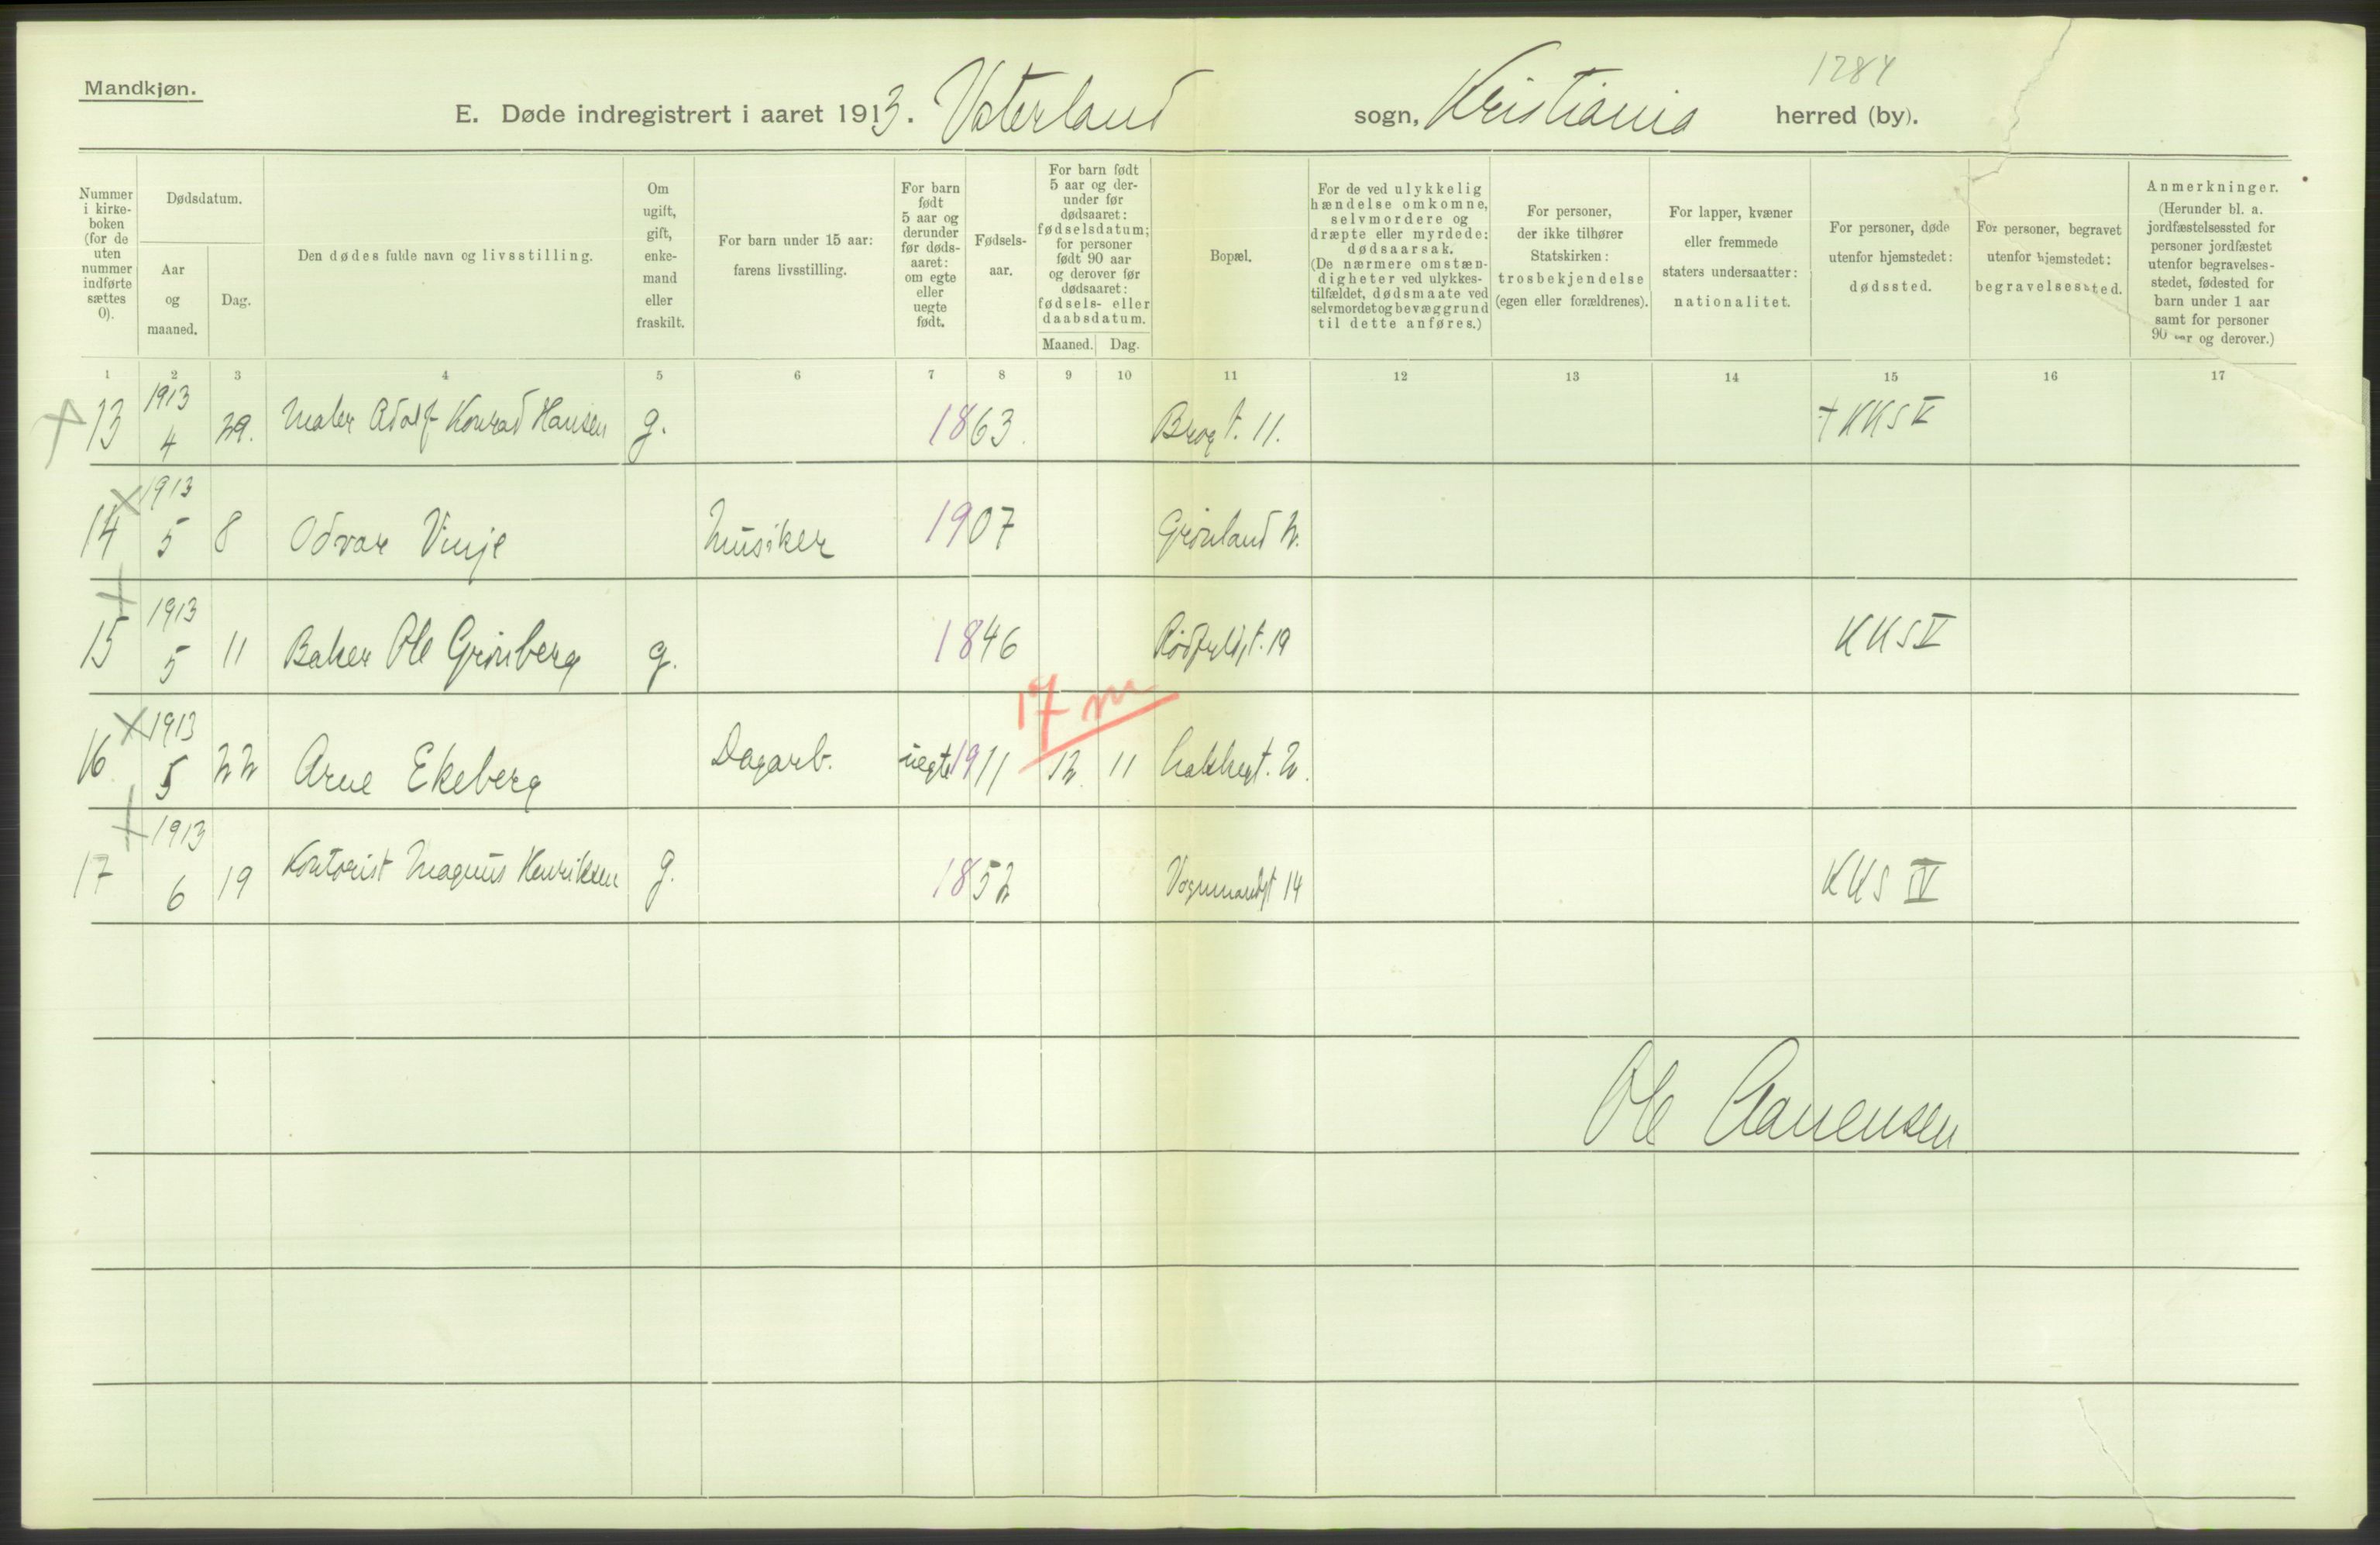 1284
Mandkjøn.
E. Døde indregistrert i aaret 1913. Vaterland sogn, Kristiania herred (by).
Nummer i kirke-boken (for de uten nummer indførte sættes 0).
Dødsdatum.
Aar og maaned.
Dag.
Den dødes fulde navn og livsstilling.
Om ugift, gift, enke-mand eller fraskilt.
For barn under 15 aar: farens livsstilling.
For barn født 5 aar og derunder før døds-aaret: om egte eller uegte født.
Fødsels-aar.
For barn født 5 aar og der-under før dødsaaret: fødselsdatum; for personer født 90 aar og derover før dødsaaret: fødsels- eller daabsdatum.
Maaned. Dag.
Bopæl.
For de ved ulykkelig hændelse omkomne, selvmordere og dræpte eller myrdede: dødsaarsak. (De nærmere omstæn-digheter ved ulykkes-tilfældet, dødsmaate ved selvmordet og bevæggrund til dette anføres.)
For personer, der ikke tilhører Statskirken: trosbekjendelse (egen eller forældrenes).
For lapper, kvæner eller fremmede staters undersaatter: nationalitet.
For personer, døde utenfor hjemstedet: dødssted.
For personer, begravet utenfor hjemstedet: begravelsessted.
Anmerkninger. (Herunder bl. a. jordfæstelsessted for personer jordfæstet utenfor begravelses-stedet, fødested for barn under 1 aar samt for personer 90 aar og derover.)
1 2 3 4 5 6 7 8 9 10 11 12 13 14 15 16 17
13 1913 4 29. Maler Adolf Konrad Hansen g. 1863. Brogt. 11. + KKS V
14 1913 5 8 Odvar Vinje Musiker 1907 Grønland 2.
15 1913 5 11 Baker Ole Grønberg g. 1846 Rødfyldgt. 19 KKS V
17 m
16 1913 5 22 Arne Ekeberg Dagarb. uegte 1911 12 11 Lakkegt. 2.
17 1913 6 19 Kontorist Magnus Henriksen g. 1852 Vognmandsgt 14 KKS IV
Ole